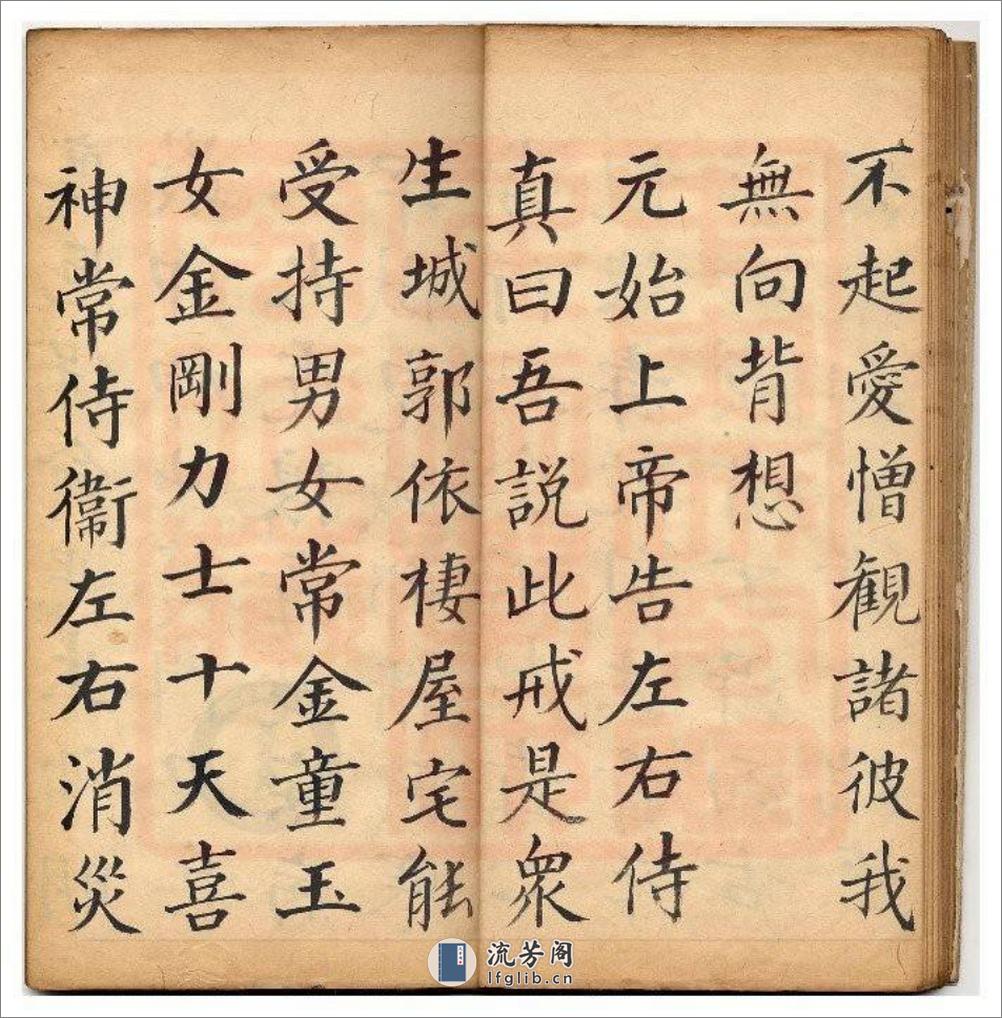 不起愛憎観諸彼我
無向背想
元始上帝告左右侍
真曰吾説此戒是衆
生城郭依棲屋宅能
受持男女常金童玉
女金剛力士十天喜
神常侍衞左右消災
流芳阁
lfglib.cn